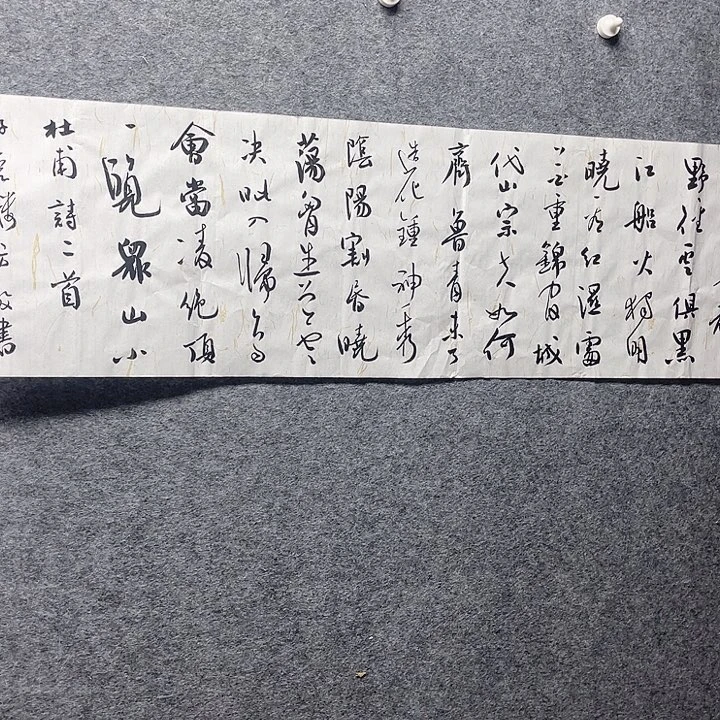 野徑雲俱黑
江船火獨明
曉看紅濕處
花重錦官城
岱山宗夫如何
齊魯青未了
造化鍾神秀
陰陽割昏曉
蕩胸生曾雲
決眥入歸鳥
會當凌絕頂
一覽眾山小
杜甫詩二首
書